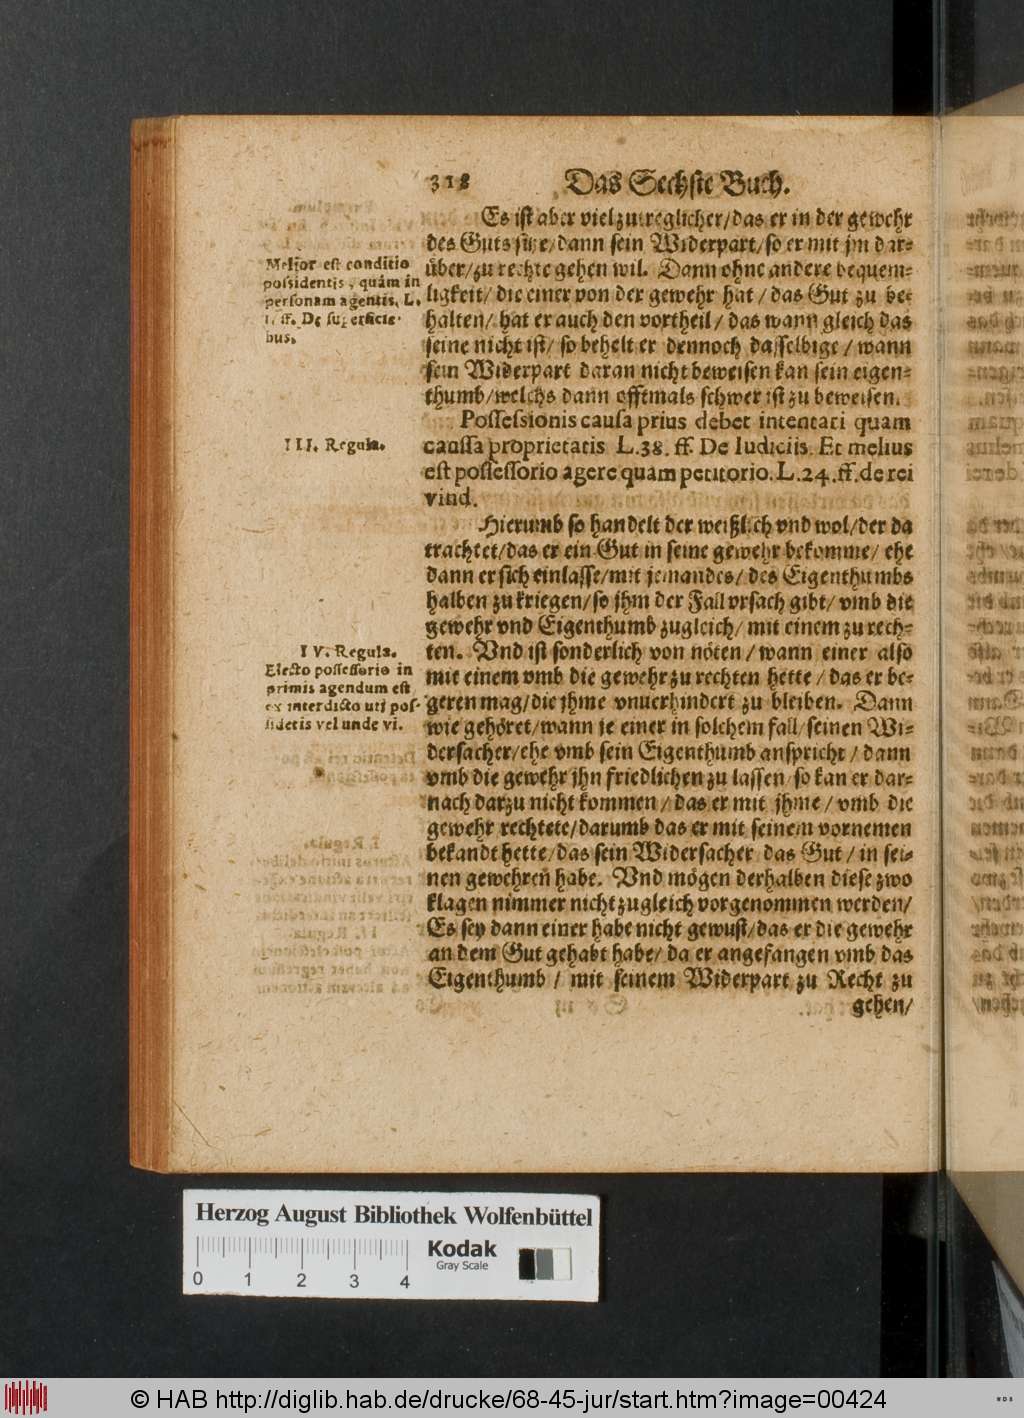 318 Das Sechste Buch.
Es ist aber viel zutreglicher/das er in der gewehr
des Guts sitze/dann sein Widerpart/so er mit jm dar-
über/zu rechte gehen wil. Dann ohne andere bequem-
ligkeit/ die einer von der gewehr hat / das Gut zu be-
halten/ hat er auch den vortheil / das wann gleich das
seine nicht ist/ so behelt er dennoch dasselbige / wann
sein Widerpart daran nicht beweisen kan sein eigen-
thumb/welchs dann offtmals schwer ist zu beweisen.
Melior est conditio
possidentis, quàm in
personam agentis. L.
1. ff. De superficie-
bus.
Possessionis causa prius debet intentari quam
caussa proprietatis L.38. ff. De Iudiciis. Et melius
est possessorio agere quam petitorio. L.24.ff.de rei
vind.
III. Regula.
Hierumb so handelt der weißlich vnd wol/der da
trachtet/das er ein Gut in seine gewehr bekomme/ ehe
dann er sich einlasse/mit jemandes/ des Eigenthumbs
halben zu kriegen/so jhm der Fall vrsach gibt/ vmb die
gewehr vnd Eigenthumb zugleich/ mit einem zu rech-
ten. Vnd ist sonderlich von nöten / wann einer also
mit einem vmb die gewehr zu rechten hette / das er be-
geren mag/die jhme vnuerhindert zu bleiben. Dann
wie gehöret/wann je einer in solchem fall/seinen Wi-
dersacher/ehe vmb sein Eigenthumb anspricht / dann
vmb die gewehr jhn friedlichen zu lassen/so kan er dar-
nach darzu nicht kommen / das er mit jhme / vmb die
gewehr rechtete/darumb das er mit seinem vornemen
bekandt hette/das sein Widersacher das Gut / in sei-
nen gewehren habe. Vnd mögen derhalben diese zwo
klagen nimmer nicht zugleich vorgenommen werden/
Es sey dann einer habe nicht gewust/das er die gewehr
an dem Gut gehabt habe/ da er angefangen vmb das
Eigenthumb / mit seinem Widerpart zu Recht zu
gehen/
IV. Regula.
Electo possessorio in
primis agendum est
ex interdicto uti pos-
sidetis vel unde vi.
Herzog August Bibliothek Wolfenbüttel
0 1 2 3 4
Kodak
Gray Scale
© HAB http://diglib.hab.de/drucke/68-45-jur/start.htm?image=00424